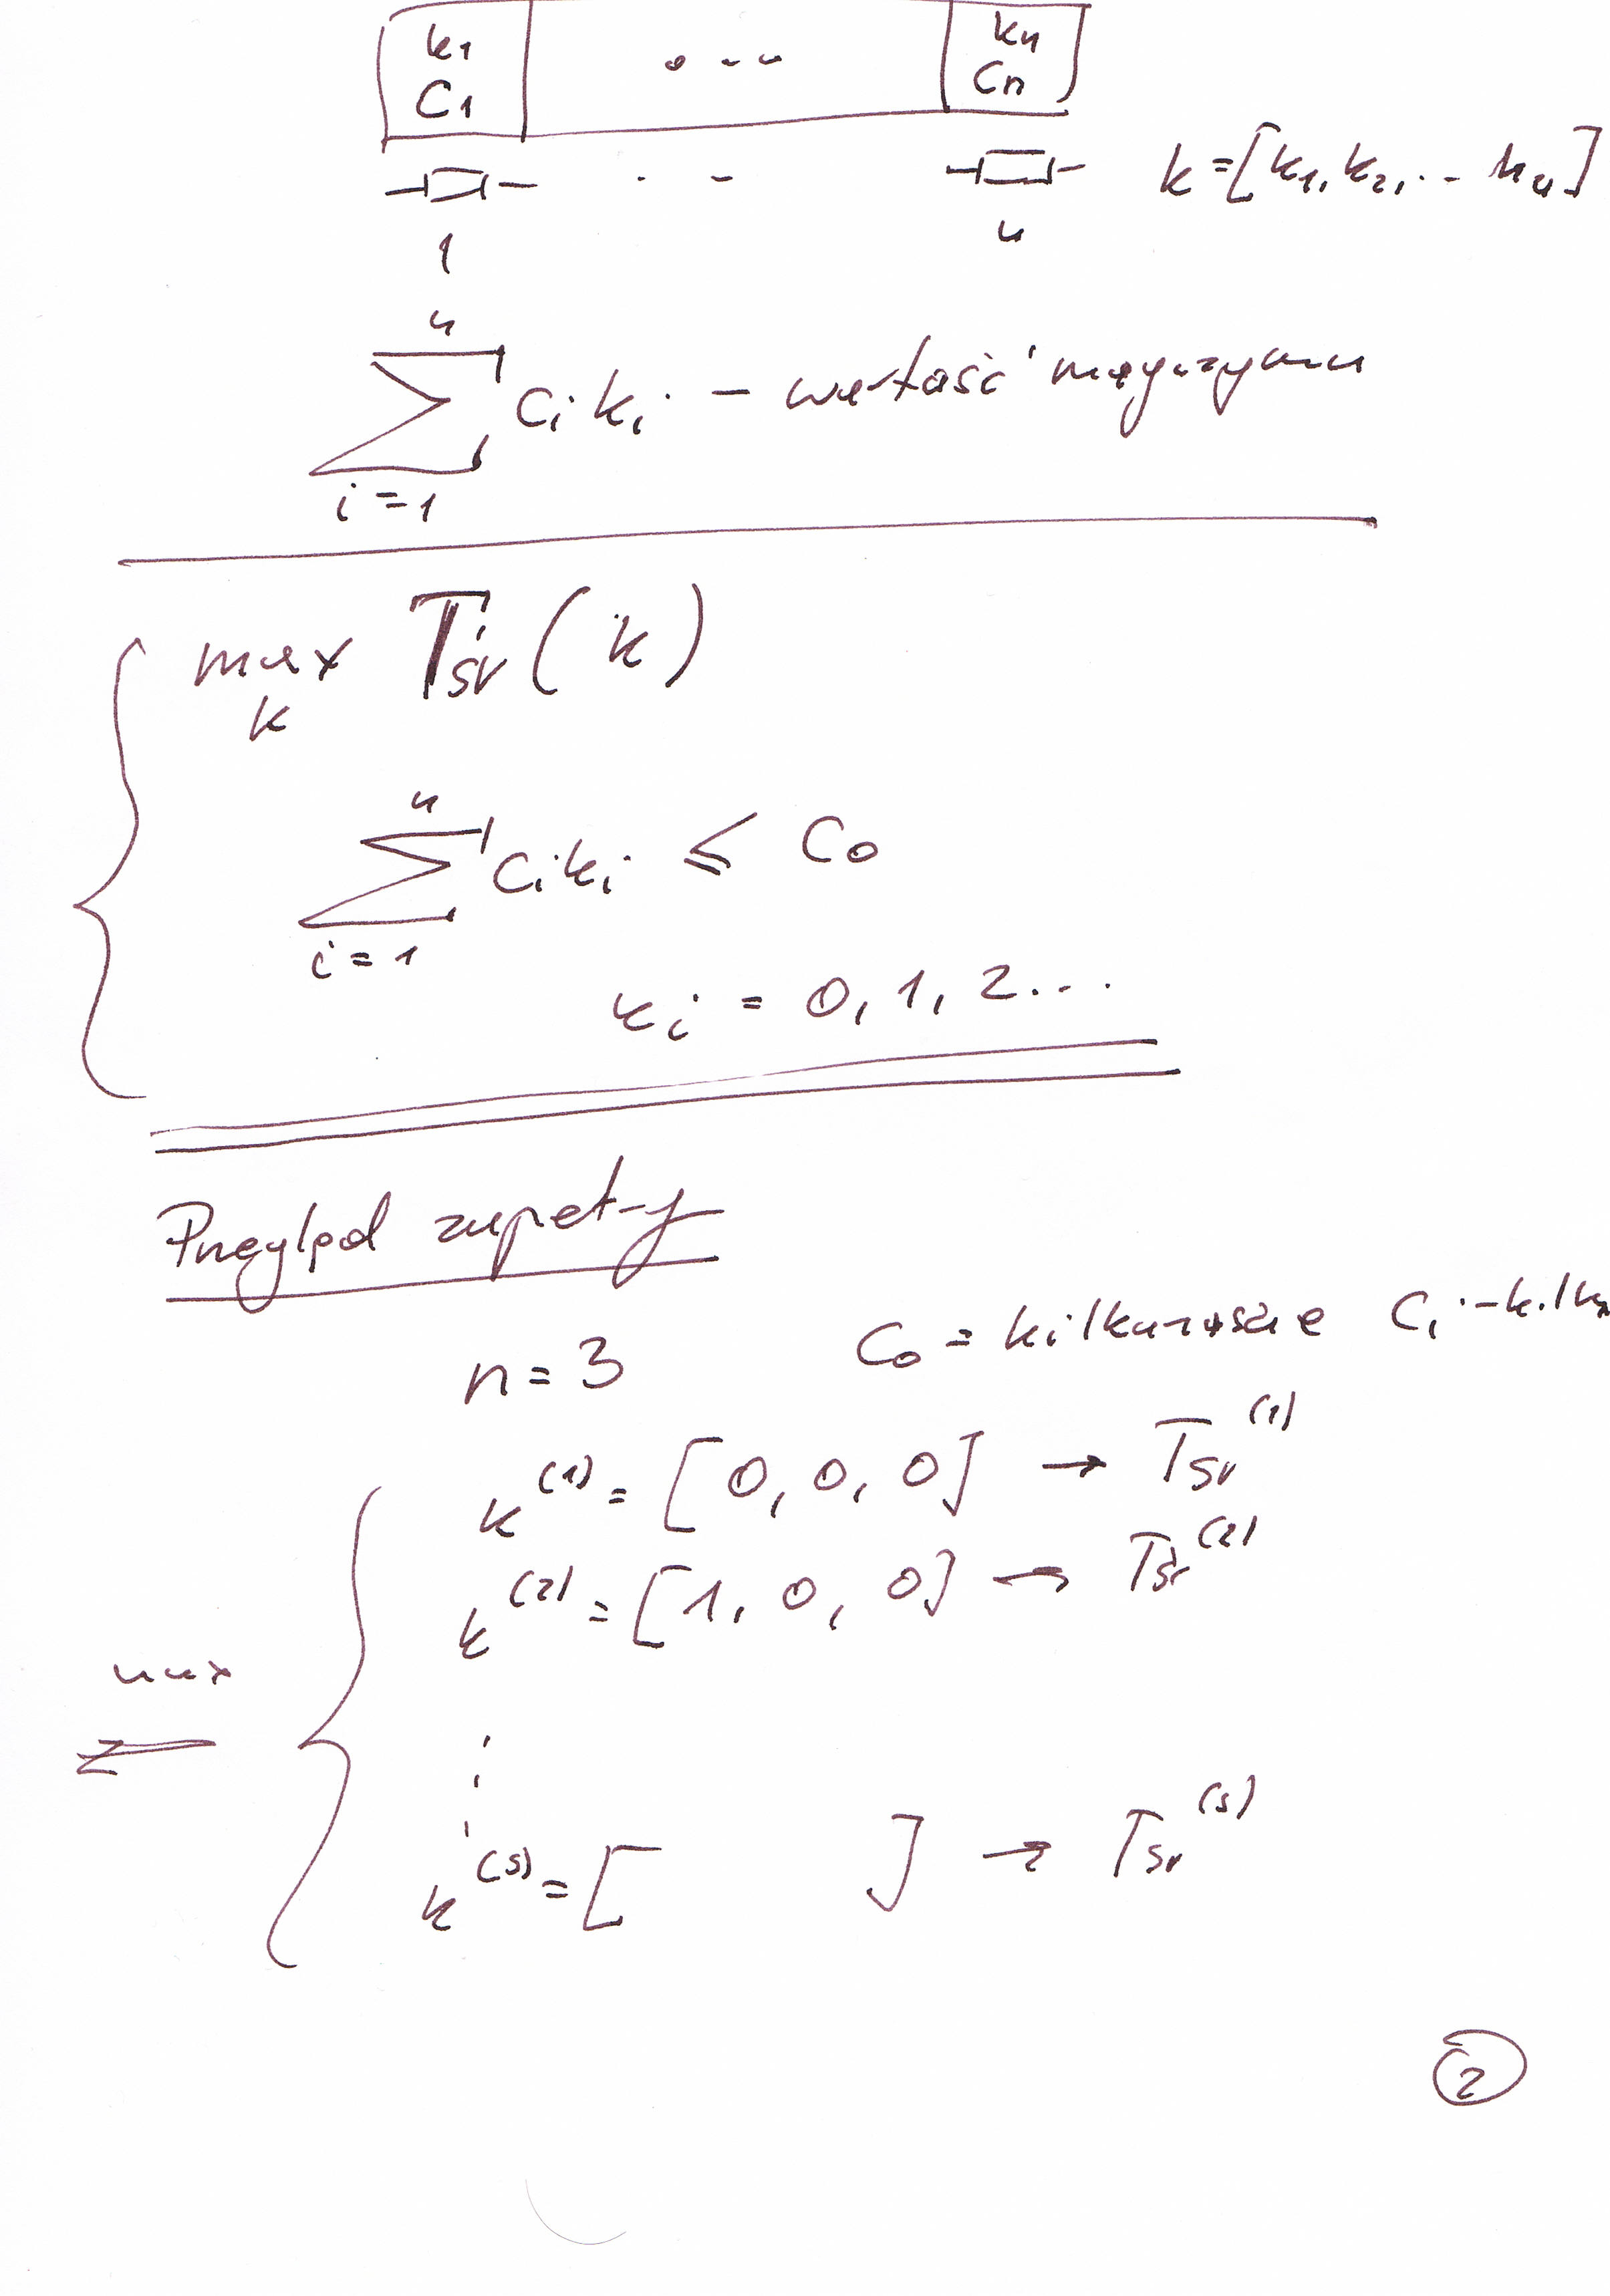 k₁ ... kₙ
C₁ Cₙ
k = [k₁, k₂, ... kₙ]
1 .. n
∑ᵢ₌₁ⁿ Cᵢ kᵢ – wartość magazynu
max Tśr(k)
k
∑ᵢ₌₁ⁿ Cᵢ kᵢ ≤ C₀
kᵢ = 0, 1, 2...
Przegląd zupełny
n = 3 C₀ = kilkanaście Cᵢ – kilka
k⁽¹⁾ = [0, 0, 0] → Tśr⁽¹⁾
k⁽²⁾ = [1, 0, 0] → Tśr⁽²⁾
max
z
⋮
k⁽ˢ⁾ = [ ] → Tśr⁽ˢ⁾
2